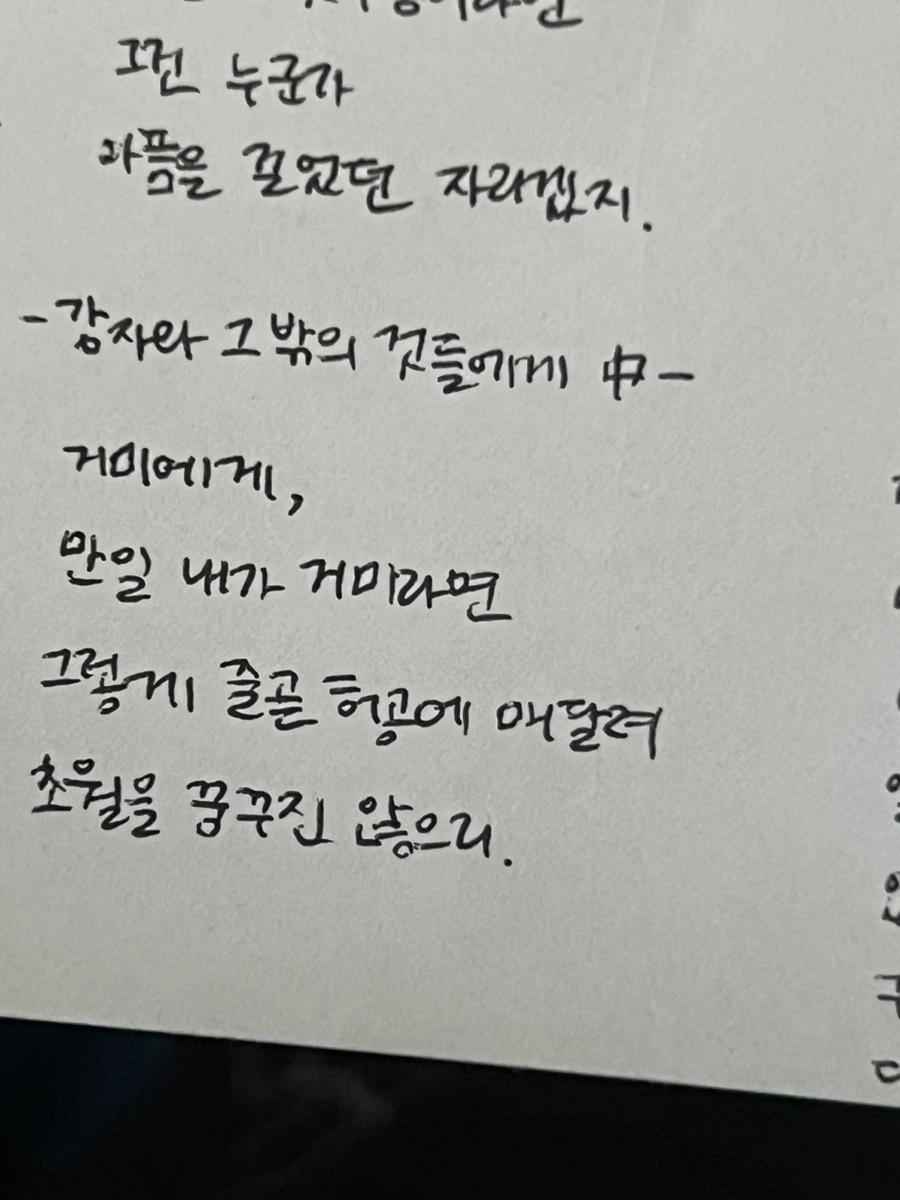 이라면
그건 누군가
아픔을 묻었던 자라겠지.
-감자와 그 밖의 것들에게 中-
거미에게,
만일 내가 거미라면
그렇게 줄곧 허공에 매달려
초월을 꿈꾸진 않으리.